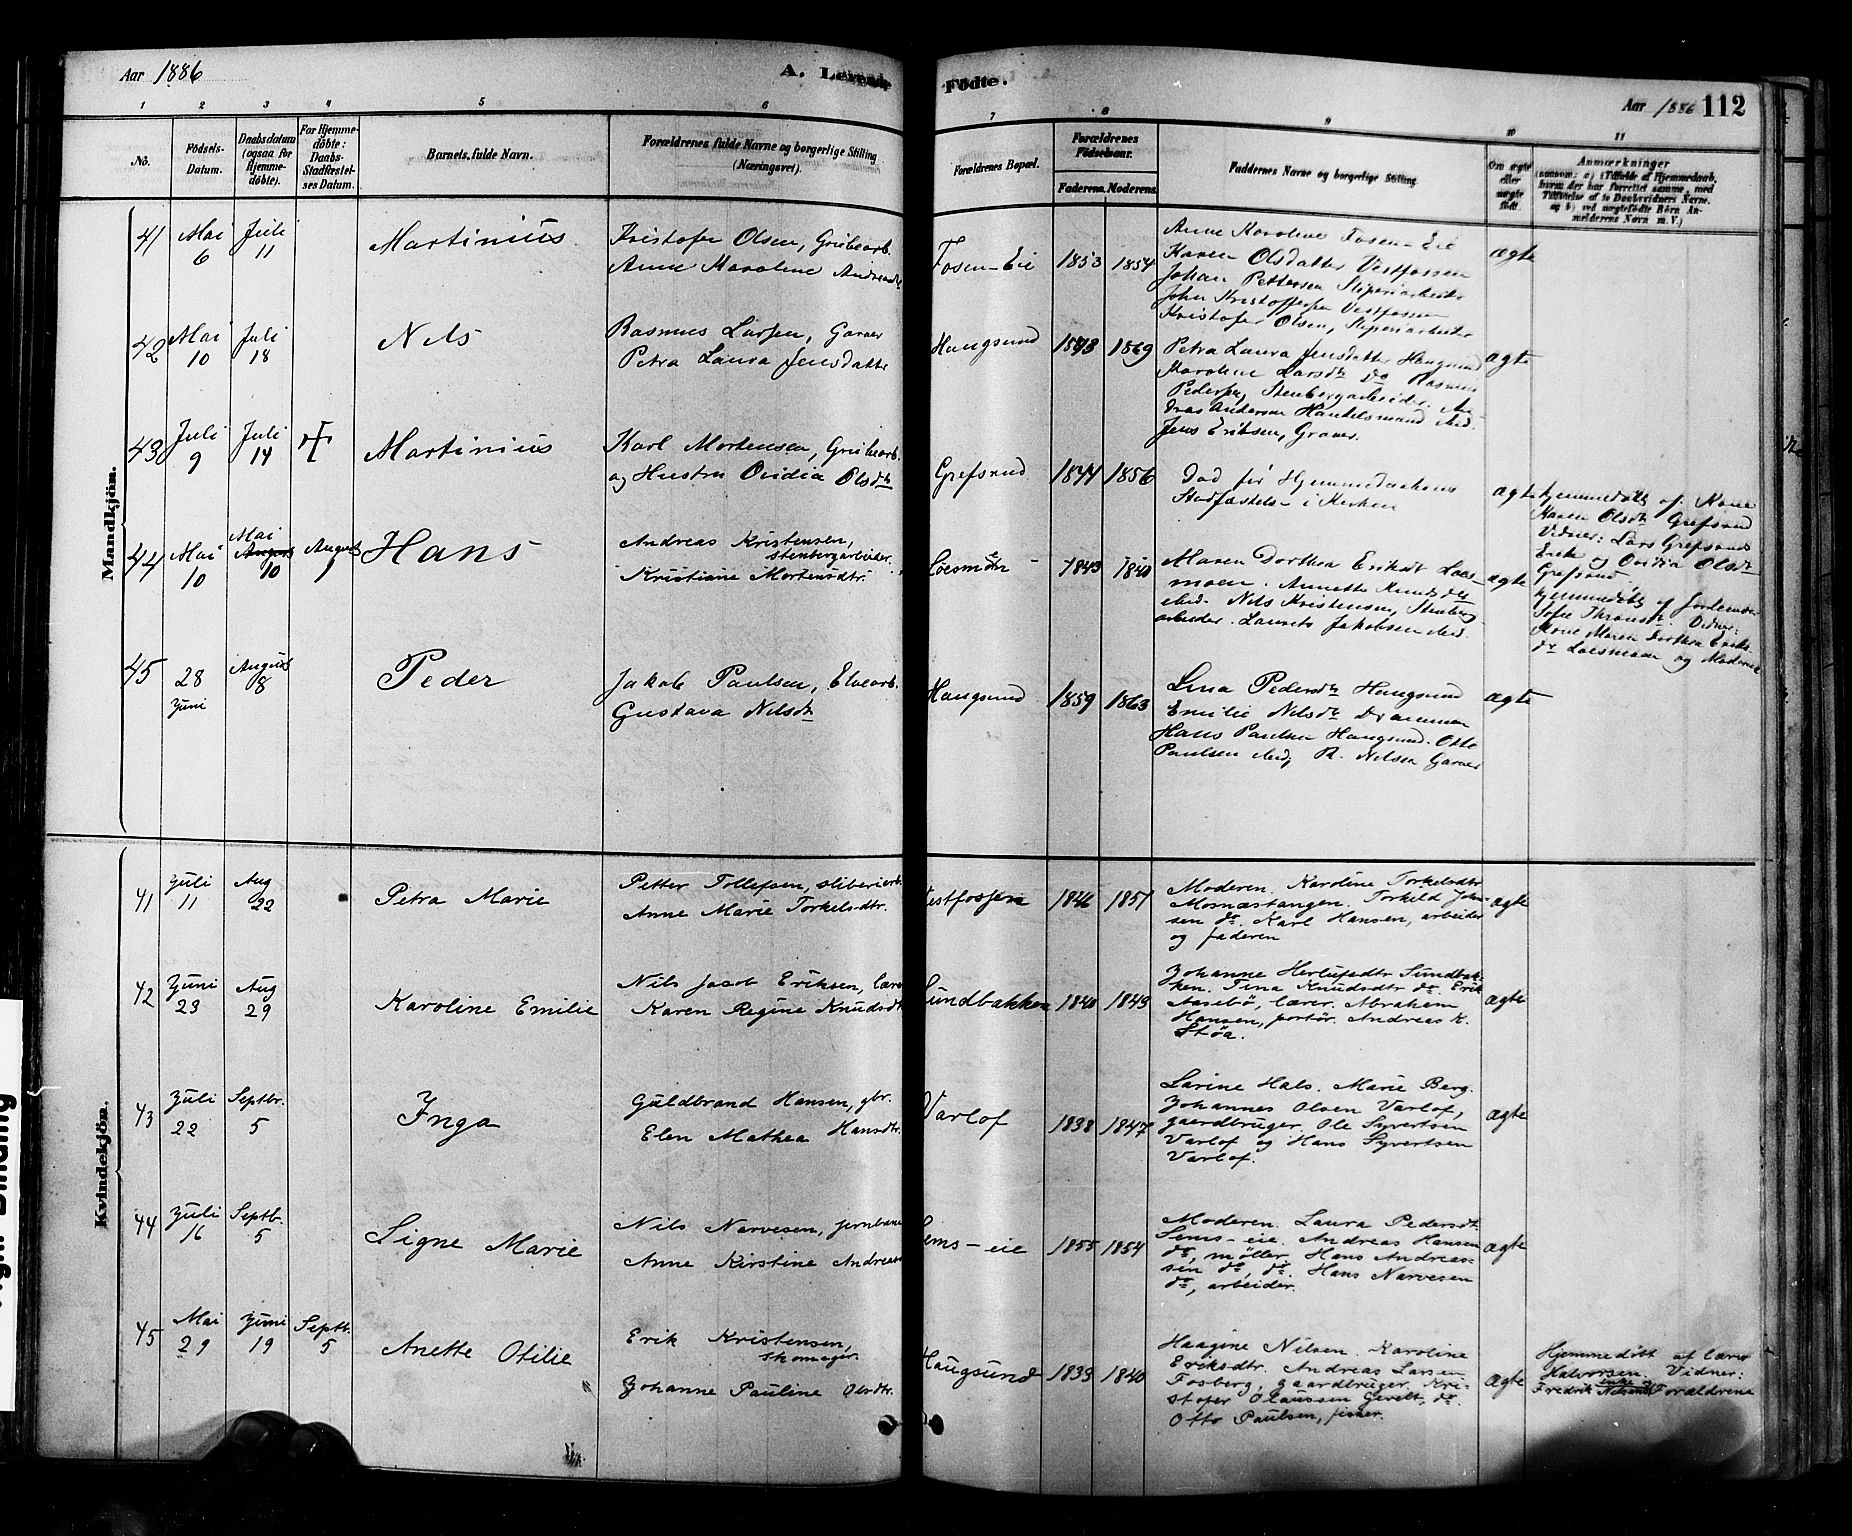 Aar 1886
A. Levende
Födte.
Aar 1886 112
1 2 3 4 5 6 7 8 9 10 11
No.
Födsels-
Datum.
Daabsdatum
(ogsaa for
Hjemme-
döbte).
For Hjemme-
döbte:
Daabs-
Stadfæstel-
ses Datum.
Barnets fulde Navn.
Forældrenes fulde Navne og borgerlige Stilling
(Næringsvei).
Forældrenes Bopæl.
Forældrenes
Födselsaar.
Faderens. Moderens.
Faddernes Navne og borgerlige Stilling.
Om ægte
eller
uægte
födt.
Anmærkninger
(saasom: a) i Tilfælde af Hjemmedaab,
hvem der har forrettet samme, med
Tilföielse af to Daabsvidners Navne,
og b) ved uægtefödte Börn An-
melderens Navn m. V.)
Mandkjön.
41 Mai 6 Juli 11
Martinius
Kristofer Olsen, Grubearb.
Anne Karoline Andreasdt
Fosen-Eie 1853 1854
Anne Karoline Fosen-Eie
Karen Olsdatter Vestfossen
Johan Pettersen Sliperiarbeider
John Kristoffersen Vestfossen
Kristofer Olsen, Sliperiarbeider
ægte
42 Mai 10 Juli 18
Nels
Rasmus Larsen, Garver
Petra Laura Jensdatter
Haugsund 1843 1869
Petra Laura Jensdatter Haugsund
Karoline Larsdt do Rasmus
Pedersen, Stenbergarbeider. An-
dreas Anderson Handelsmand ibid.
Jens Eriksen, Graver.
ægte
43 Juli 9 Juli 14 +
Martinius
Karl Mortensen, Grubearb.
og Hustru Ovidia Olsdt
Grefsrud 1844 1856
Død før Hjemmedaabens
Stadfæstelse i Kirken
ægte
hjemmedøbt af Kone
Karen Olsdt Grefsrud
Vidner: Lars Grefsrud
Erik og Ovidia Olsdt
Grefsrud
44 Mai 10 Mai August 10 August 1
Hans
Andreas Kristensen,
stenbergarbeider.
Kristiane Mortensdtr.
Loesmoen 1843 1840
Maren Dorthea Eriksdt Loes-
moen. Annette Knudsdt
ibid. Nils Kristensen, Stenberg
arbeider. Laurits Jakobsen ibid.
ægte
hjemmedøbt af Jordemor
Sofie Thronsdt. Vidner:
Kone Maren Dorthea Eriks-
dt Loesmoen og Moderen
45 28 Juni August 8
Peder
Jakob Paulsen, Elvearb.
Gustava Nilsdt
Haugsund 1859 1863
Lina Pedersdt Haugsund
Emilie Nilsdt Drammen
Hans Paulsen Haugsund. Otto
Paulsen ibid, R. Nilsen Garver
ægte
Kvindekjön.
41 Juli 11 Aug 22
Petra Marie
Petter Tollefsen, sliberiarb.
Anne Marie Torkelsdtr.
Vestfossen 1846 1851
Moderen. Karoline Torkelsdtr
Mosnæstangen. Torkild John-
sen do. Karl Hansen, arbeider
og faderen
ægte
42 Juni 23 Aug 29
Karoline Emilie
Nils Jacob Eriksen, lærer
Karen Regine Knudsdt
Sundbakken 1840 1843
Johanne Herlufsdtr Sundbak-
ken. Tina Knudsdtr do. Erik
Aasebö, lærer. Abraham
Hansen, portör. Andreas K.
Støa.
ægte
43 Juli 22 Septbr. 5
Inga
Guldbrand Hansen, gbr.
Elen Mathea Hansdtr.
Varlof 1838 1847
Larine Hals. Marie Berg.
Johannes Olsen Varlof,
gaardbruger. Ole Syvertsen
Varlof og Hans Syvertsen
Varlof.
ægte
44 Juli 16 Septb. 5
Signe Marie
Nils Narvesen, jernbane
Anne Kirstine Andreas
Sems-eie 1855 1854
Moderen. Laura Pedersdt.
Sems-eie. Andreas Hansen
do, møller. Hans Andreas-
sen do, do. Hans Narvesen
do, arbeider.
ægte
45 Mai 29 Juni 19 Septb. 5
Anette Otilie
Erik Kristensen,
skomager.
Johanne Pauline Olsdtr.
Haugsund 1833 1840
Haagine Nilsen. Karoline
Eriksdtr. Andreas Larsen
Fosberg, gaardbruger. Kri-
stofer Olaussen Gevelt, do.
Otto Paulsen, fisker.
ægte
Hjemmedöbt af lærer
Halvorsen. Vidner:
Fredrik Nilsens enke og Forældrene